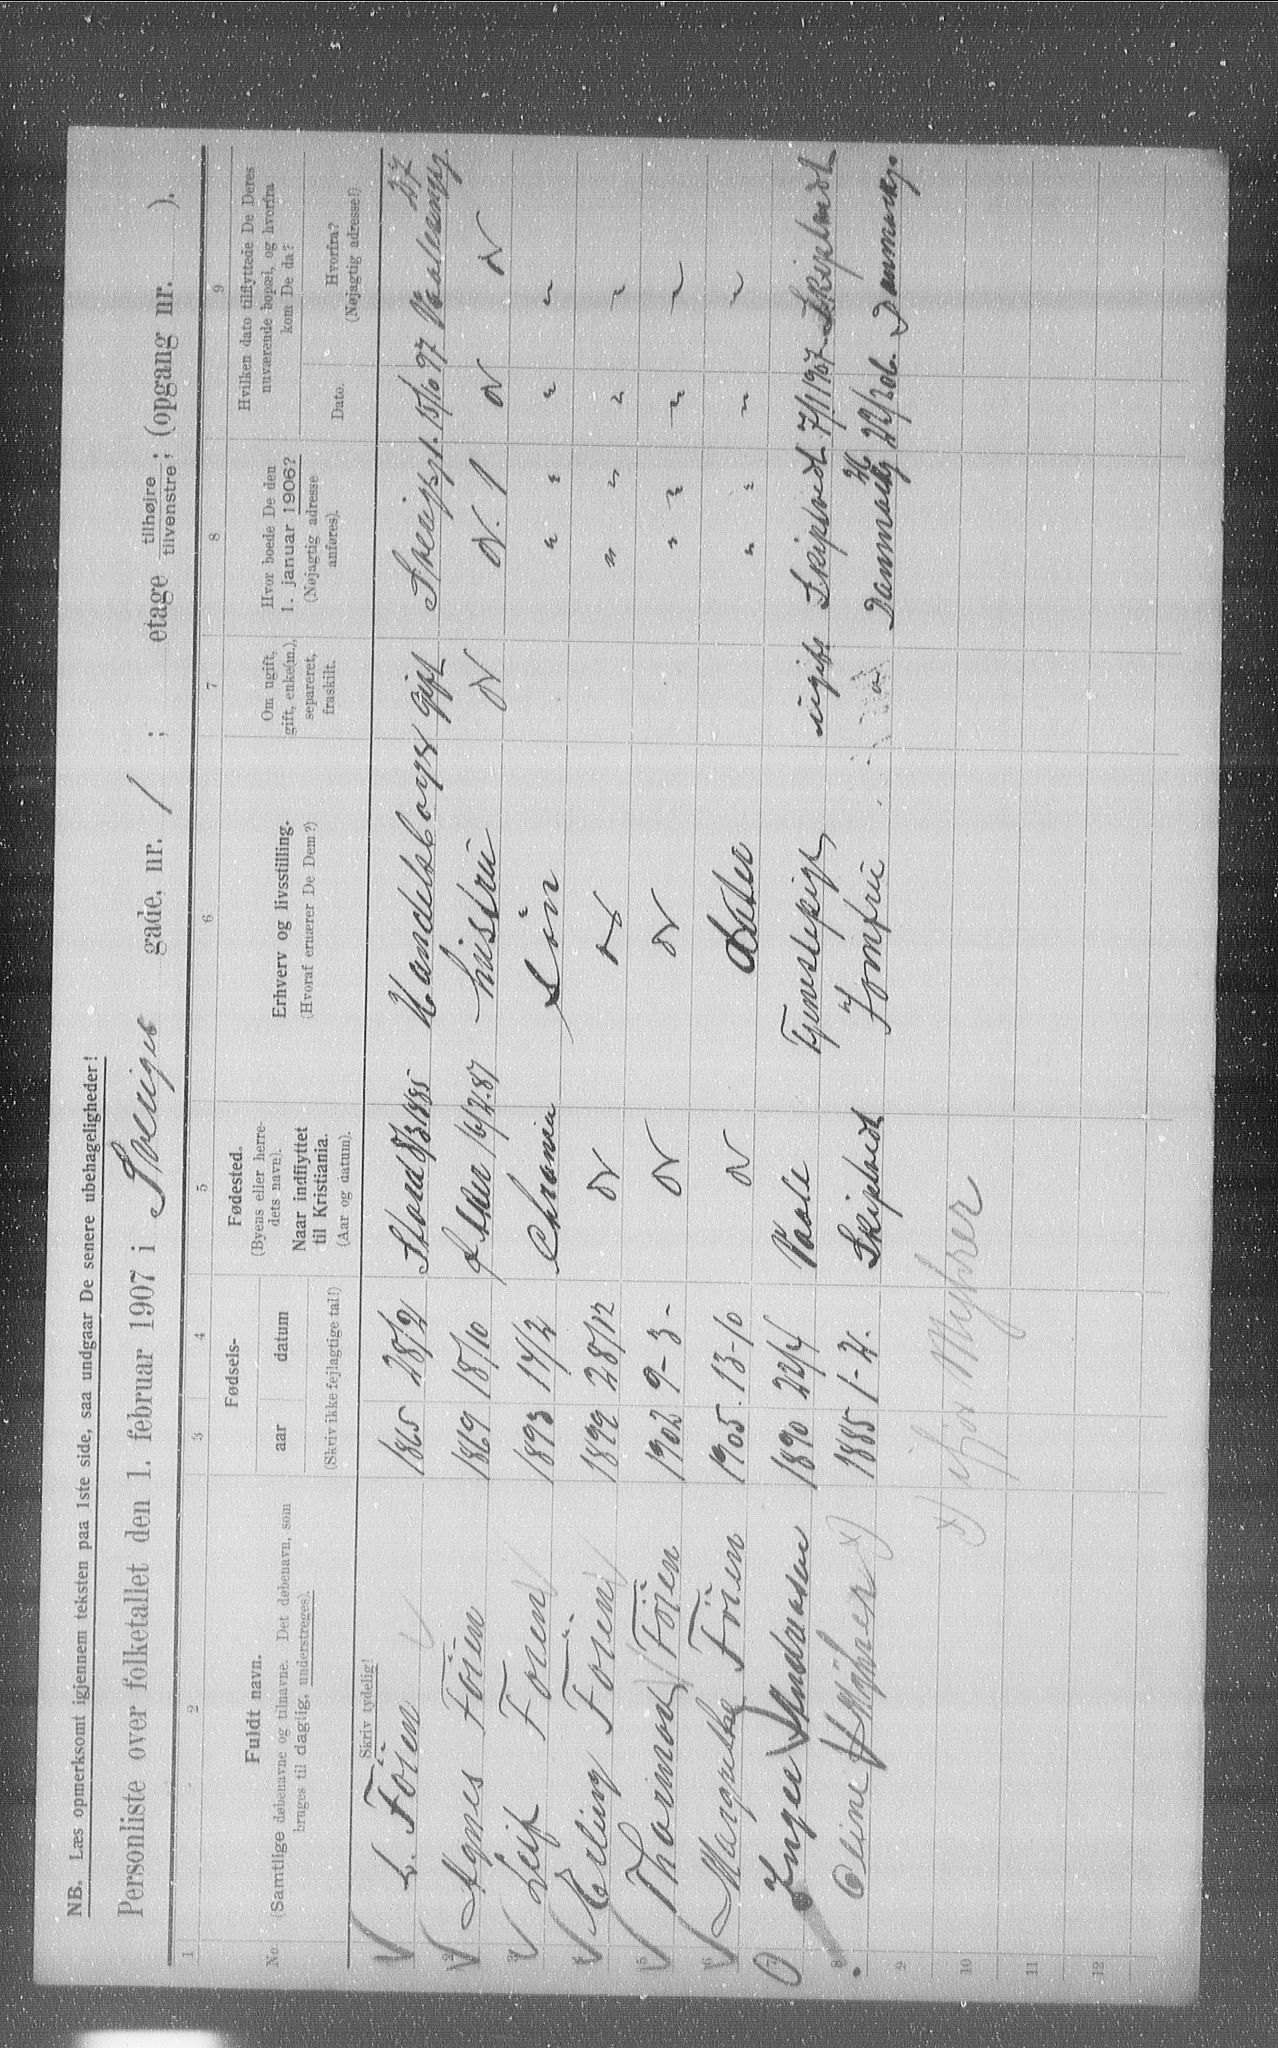 NB. Læs opmerksomt igjennem teksten paa 1ste side, saa undgaar De senere ubehageligheder!
Personliste over folketallet den 1. februar 1907 i Sveriges gade, nr. 1 ; etage tilhøjre tilvenstre; (opgang nr. ).
1 2 3 4 5 6 7 8 9
No. Fuldt navn. (Samtlige døbenavne og tilnavne. Det døbenavn, som bruges til daglig, understreges). Skriv tydelig!
Fødsels- aar datum (Skriv ikke fejlagtige tal!)
Fødested. (Byens eller herredets navn). Naar indflyttet til Kristiania. (Aar og datum).
Erhverv og livsstilling. (Hvoraf ernærer De Dem?)
Om ugift, gift, enke(m.), separeret, fraskilt.
Hvor boede De den 1. januar 1906? (Nøjagtig adresse anføres).
Hvilken dato tilflyttede De Deres nuværende bopæl, og hvorfra kom De da? Dato. Hvorfra? (Nøjagtig adresse!)
L. Föien 1865 28/2 Stord 8/3 1885 Handelsborger Gift Sverigsg. 1 15/10 97 27
2 Agnes Föien 1869 18/10 Asker 16/2.87 hustru do do. 1 do do
3 Leif Foien 1893 14/2 Chrania Sön " " " "
4 Erling Foien 1899 28/12 do do " " " "
5 Thormod Föien 1902 9-3- do do " " " "
6 Margrethe Föien 1905. 13-10 do dater " " " "
Inger Andreasen 1890 22/4 Vaale Tjenestepige ugift Skiptvedt 7/1 1907 Skiptvedt
8 Oline Myhrer x) 1885 1-2. Skiptvedt Jomfru Danmark 22/2 06. Danmark
9
10 x) Myhrer
11
12